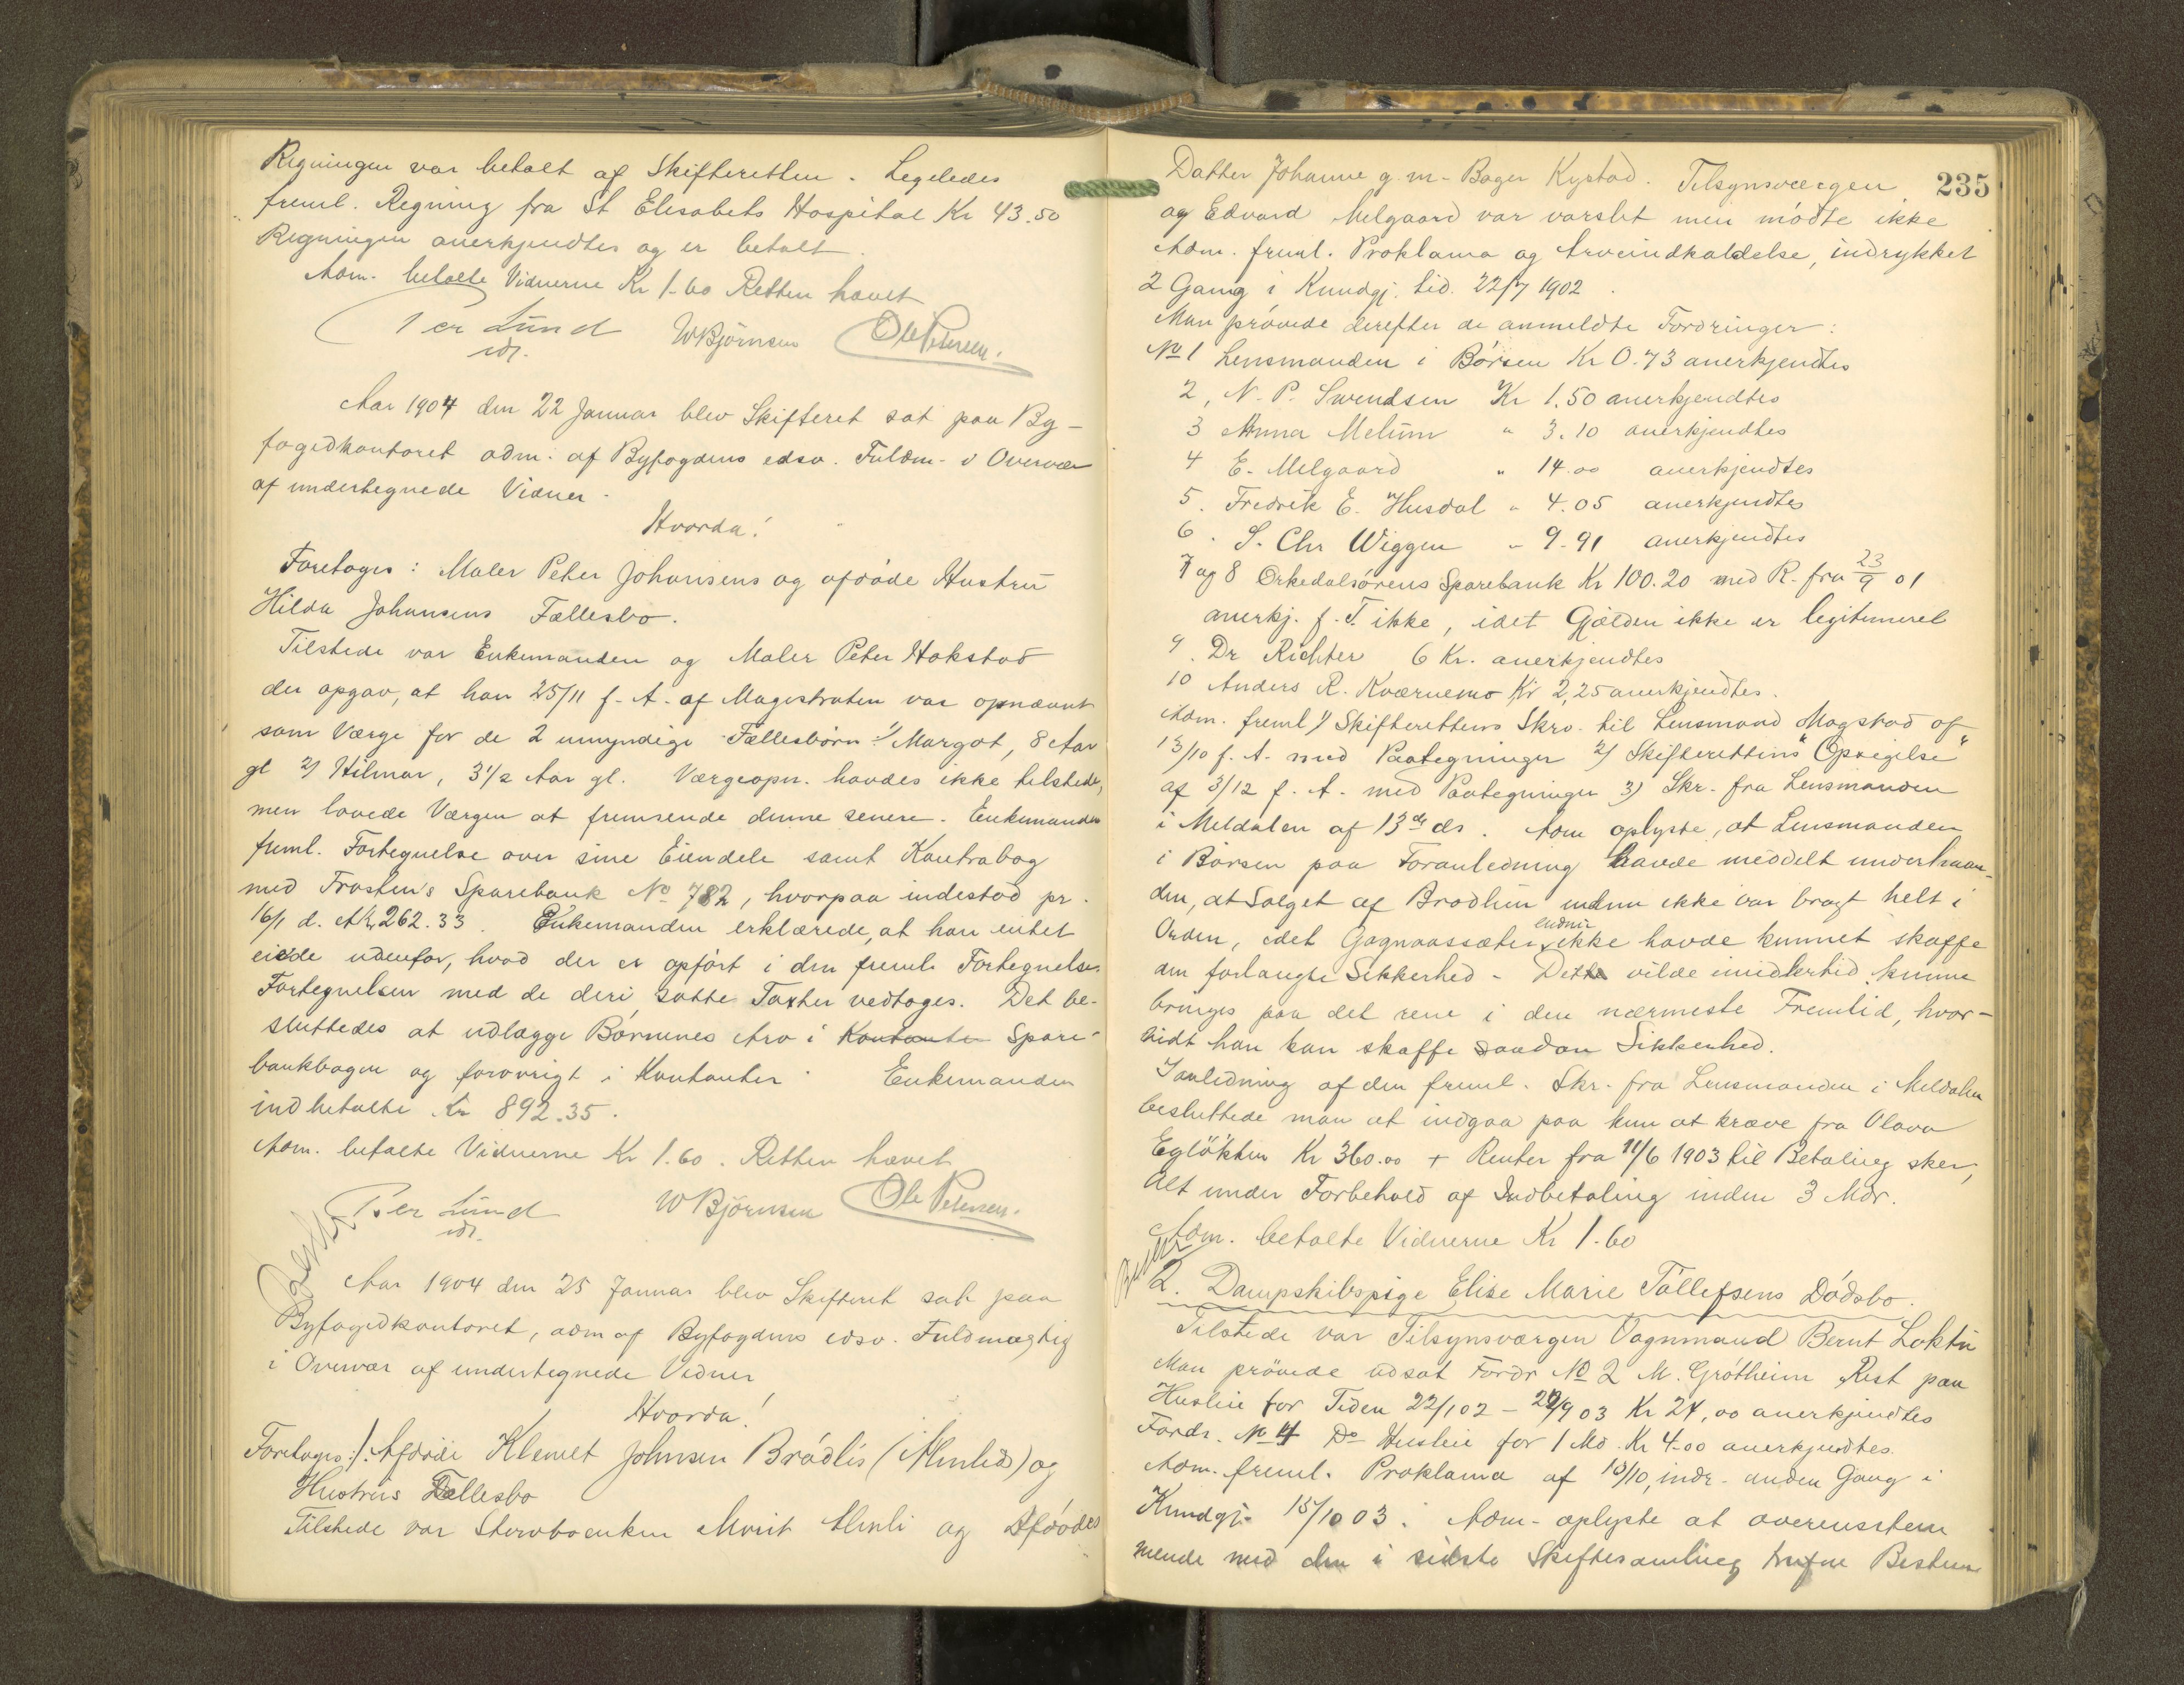 Regningen var betalt af Skifteretten. Ligeledes
freml. Regning fra St Elisabets Hospital Kr 43.50
Regningen anerkjendtes og er betalt.
Adm. betalte Vidnerne Kr 1.60 Retten hævet
Per Lund
cst. W Bjørnsen Ole Petersen.
Aar 1904 den 22 Januar blev Skifteret sat paa By-
fogedkontoret adm. af Byfogdens edsv. Fuldm. i Overvær
af undertegnede Vidner.
Hvorda!
Foretoges: Maler Peter Johansens og afdøde Hustru
Hilda Johansens Fællesbo.
Tilstede var Enkemanden og Maler Peter Hokstad
der opgav, at han 25/11 f. A. af Magistraten var opnævnt
som Værge for de 2 umyndige Fællesbørn 1/ Margot, 8 Aar
gl 2/ Hilmar, 3 1/2 Aar gl. Værgeopn. havdes ikke tilstede,
men lovede Værgen at fremsende denne senere. Enkemanden
freml. Fortegnelse over sine Eiendele samt Kontrabog
med Frosten's Sparebank No 782, hvorpaa indestod pr.
16/1 d. A. Kr 262.33. Enkemanden erklærede, at han intet
eiede udenfor, hvad der er opført i den freml. Fortegnelse.
Fortegnelsen med de deri satte Taxter vedtoges. Det be-
sluttedes at udlægge Børnenes Arv i Kontanter Spare-
bankbogen og forøvrigt i Kontanter. Enkemanden
indbetalte Kr 892.35.
Adm. betalte Vidnerne Kr 1.60. Retten hævet
Per Lund
cst. W Bjørnsen Ole Petersen.
Aar 1904 den 25 Januar blev Skifteret sat paa
Byfogedkontoret, adm af Byfogdens edsv. Fuldmægtig
i Overvær af undertegnede Vidner
Hvorda!
Foretoges: 1. Afdøde Klemet Johnsen Brødlis (Almlid) og
Hustrus Fællesbo
Tilstede var Stervboenken Marit Almli og Afdødes
235
Datter Johanne g. m. Bager Kystad. Tilsynsværgen
og Edvard Melgaard var varslet men mødte ikke
Adm. freml. Proklama og Arveindkaldelse, indrykket
2 Gang i Kundgj. tid. 22/7 1902.
Man prøvede derefter de anmeldte Fordringer:
No 1 Lensmanden i Børsen Kr 0.73 anerkjendtes
2, N. P. Svendsen Kr 1.50 anerkjendtes
3 Anna Melum " 3.10 anerkjendtes
4 E. Melgaard " 14.00 anerkjendtes
5. Fredrik E. Husdal " 4.05 anerkjendtes
6. S. Chr Wiggen " 9.91 anerkjendtes
7 og 8 Orkedalsørens Sparebank Kr 100.20 med R. fra 23/9 01
anerkj. f. T. ikke, idet Gjælden ikke er legitimeret
9. Dr Richter 6 Kr. anerkjendtes
10 Anders R. Kværnemo Kr 2,25 anerkjendtes.
Adm. freml 1/ Skifterettens Skrv. til Lensmand Mogstad af
13/10 f. A. med Paategninger 2/ Skifterettens "Opsigelse"
af 3/12 f. A. med Paategninger 3) Skr. fra Lensmanden
i Meldalen af 13de ds. Adm oplyste, at Lensmanden
i Børsen paa Foranledning havde meddelt underhaan-
den, at Salget af Brødlien endnu ikke var bragt helt i
Orden, idet Gagnaassæter endnu ikke havde kunnet skaffe
den forlangte Sikkerhed. Dette vilde imidlertid kunne
bringes paa det rene i den nærmeste Fremtid, hvor-
vidt han kan skaffe saadan Sikkerhed.
I Anledning af den freml. Skr. fra Lensmanden i Meldalen
besluttede man at indgaa paa kun at kræve fra Olava
Egløkken Kr 360.00 + Renter fra 11/6 1903 til Betaling sker,
Alt under Forbehold af Indbetaling inden 3 Mdr.
Adm. betalte Vidnerne Kr 1.60
2. Dampskibspige Elise Marie Tollefsens Dødsbo.
Tilstede var Tilsynsværgen Vognmand Bernt Loktu
Man prøvede udsat Fordr No 2 M. Grøtheim Rest paa
Husleie for Tiden 22/1 02 - 22/9 03 Kr 24,00 anerkjendtes
Fordr. No 4 Do Husleie for 1 Md. Kr 4.00 anerkjendtes.
Adm. freml. Proklama af 10/10, indr. anden Gang i
Kundgj. 15/10 03. Adm. oplyste at overensstem
mende med den i sidste Skiftesamling trufne Bestem